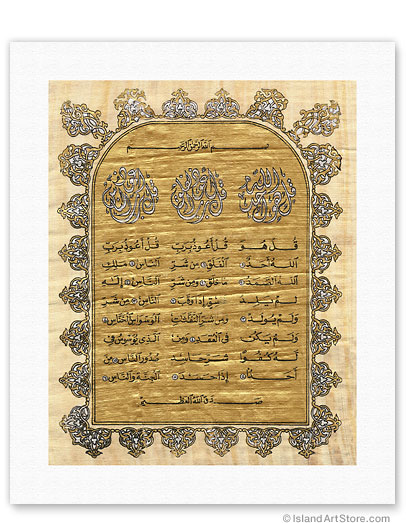 بسم الله الرحمن الرحيم
قل هو
الله أحد
الله الصمد
لم يلد
ولم يولد
ولم يكن
له كفوا
أحد
قل أعوذ برب
الفلق من شر
ما خلق ومن شر
غاسق إذا وقب
ومن شر النفثت
فى العقد ومن
شر حاسد
إذا حسد
قل أعوذ برب
الناس ملك
الناس إله
الناس من شر
الوسواس الخناس
الذى يوسوس فى
صدور الناس من
الجنة والناس
صدق الله العظيم
© IslandArtStore.com